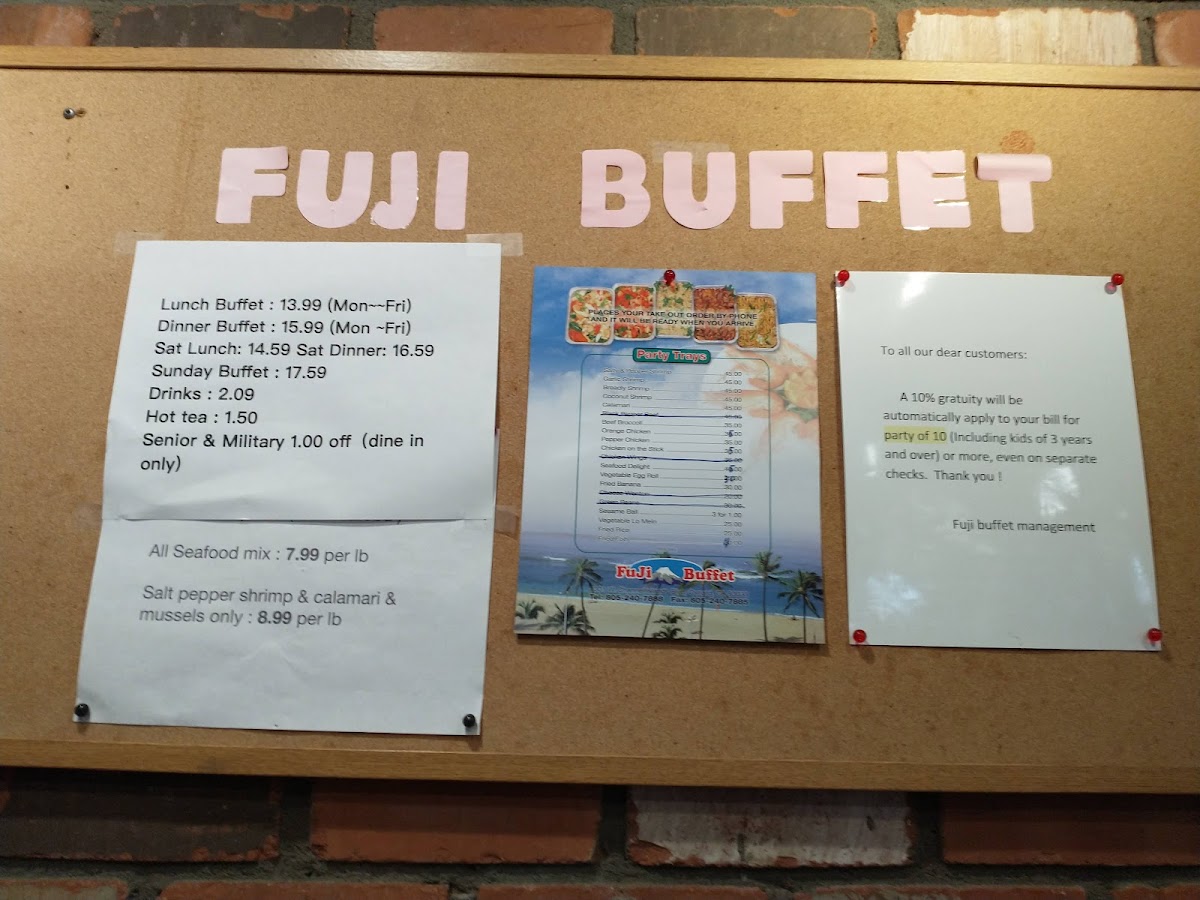 FUJI BUFFET
Lunch Buffet : 13.99 (Mon~~Fri)
Dinner Buffet : 15.99 (Mon ~Fri)
Sat Lunch: 14.59 Sat Dinner: 16.59
Sunday Buffet : 17.59
Drinks : 2.09
Hot tea : 1.50
Senior & Military 1.00 off (dine in
only)
All Seafood mix : 7.99 per lb
Salt pepper shrimp & calamari &
mussels only : 8.99 per lb
PLACES YOUR TAKE-OUT ORDER BY PHONE
AND IT WILL BE READY WHEN YOU ARRIVE
Party Trays
45.00
Garlic Shrimp 45.00
Broccoli Shrimp 45.00
Coconut Shrimp 45.00
Calamari 45.00
Beef Broccoli
Orange Chicken
Pepper Chicken
Chicken on the Stick
Chicken Wings
Seafood Delight
Vegetable Egg Roll
Fried Banana 30.00
Cheese Wonton
Green Beans
Sesame Ball 3 for 1.00
Vegetable Lo Mein 25.00
Fried Rice
FuJi Buffet
Tel: 605-240-7888 Fax: 605-240-7885
To all our dear customers:
A 10% gratuity will be
automatically apply to your bill for
party of 10 (Including kids of 3 years
and over) or more, even on separate
checks. Thank you !
Fuji buffet management